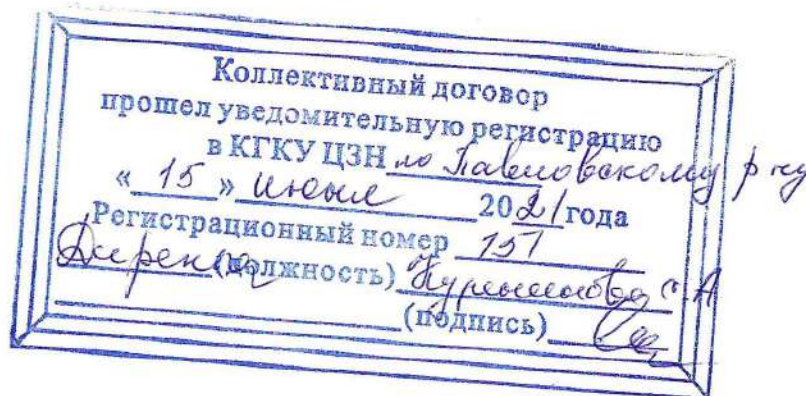 Коллективный договор
прошел уведомительную регистрацию
в КГКУ ЦЗН по Павловскому р-ну
« 15 » 20 21 года
Регистрационный номер 151
Директор (должность)
(подпись)